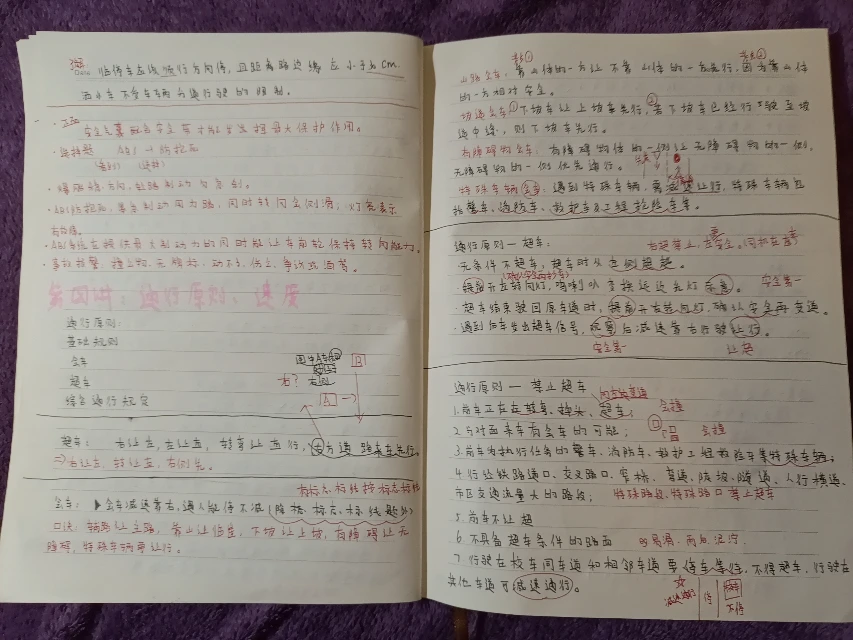 临停车应该顺行方向停,且距离路边缘应小于30cm.
洒水车不受车辆分道行驶的限制。
·正面
安全气囊配合安全带才能发挥最大保护作用。
·ABS防抱死,紧急制动用力踩,同时转向会侧滑;灯亮表示
有故障。
·ABS系统在提供最大制动力的同时能让车前轮保持转向能力。
第四讲:通行原则、速度
通行原则:
基础规则
会车
超车
综合通行规定
右?
A
B
让车: 右让左,左让直,转弯让直行,右方道路来车先行。
⇒右让左,转让直,右侧先。
有标志、标线按标志标线
会车:会车减速靠右,遇人能停不减(除标、标志、标线题外)
口诀:辅路让主路,靠山让临崖,下坡让上坡,有障碍让无
障碍,特殊车辆要让行。
山路会车:靠山体的一方让不靠山体的一方先行,因为靠山体
的一方相对安全。
坡道会车①下坡车让上坡车先行,②若下坡车已经行驶至坡
道中途,则下坡车先行。
有障碍物会车:有障碍物体的一侧让无障碍物的一侧,
无障碍物的一侧优先通行。
特殊车辆会车:遇到特殊车辆,需减速让行,特殊车辆包
括警车、消防车、救护车及工程抢险车等。
通行原则一超车:
无条件不超车,超车时从左侧超越。
安全第一
提前开左转向灯,鸣喇叭,变换远近光灯示意。
超车结束驶回原车道时,提前开右转向灯,确认安全再变道。
·遇到后车发出超车信号,观察后减速靠右行驶让行。
安全第一
让超
通行原则 — 禁止超车
1.前车正在左转弯、掉头、超车;
会撞
2.与对面来车有会车的可能;
会撞
3.前车为执行任务的警车、消防车、救护工程救险车等特殊车辆;
4.行经铁路道口、交叉路口、窄桥、弯道、陡坡、隧道、人行横道、
市区交通流量大的路段;
特殊路段,特殊路口禁止超车
5.前车不让超
6.不具备超车条件的路面
易滑、雨后泥泞.
7.行驶在校车同车道和相邻车道要停车等待,不得超车,行驶在
其他车道可减速通行。
减速通行
停
校车
不停